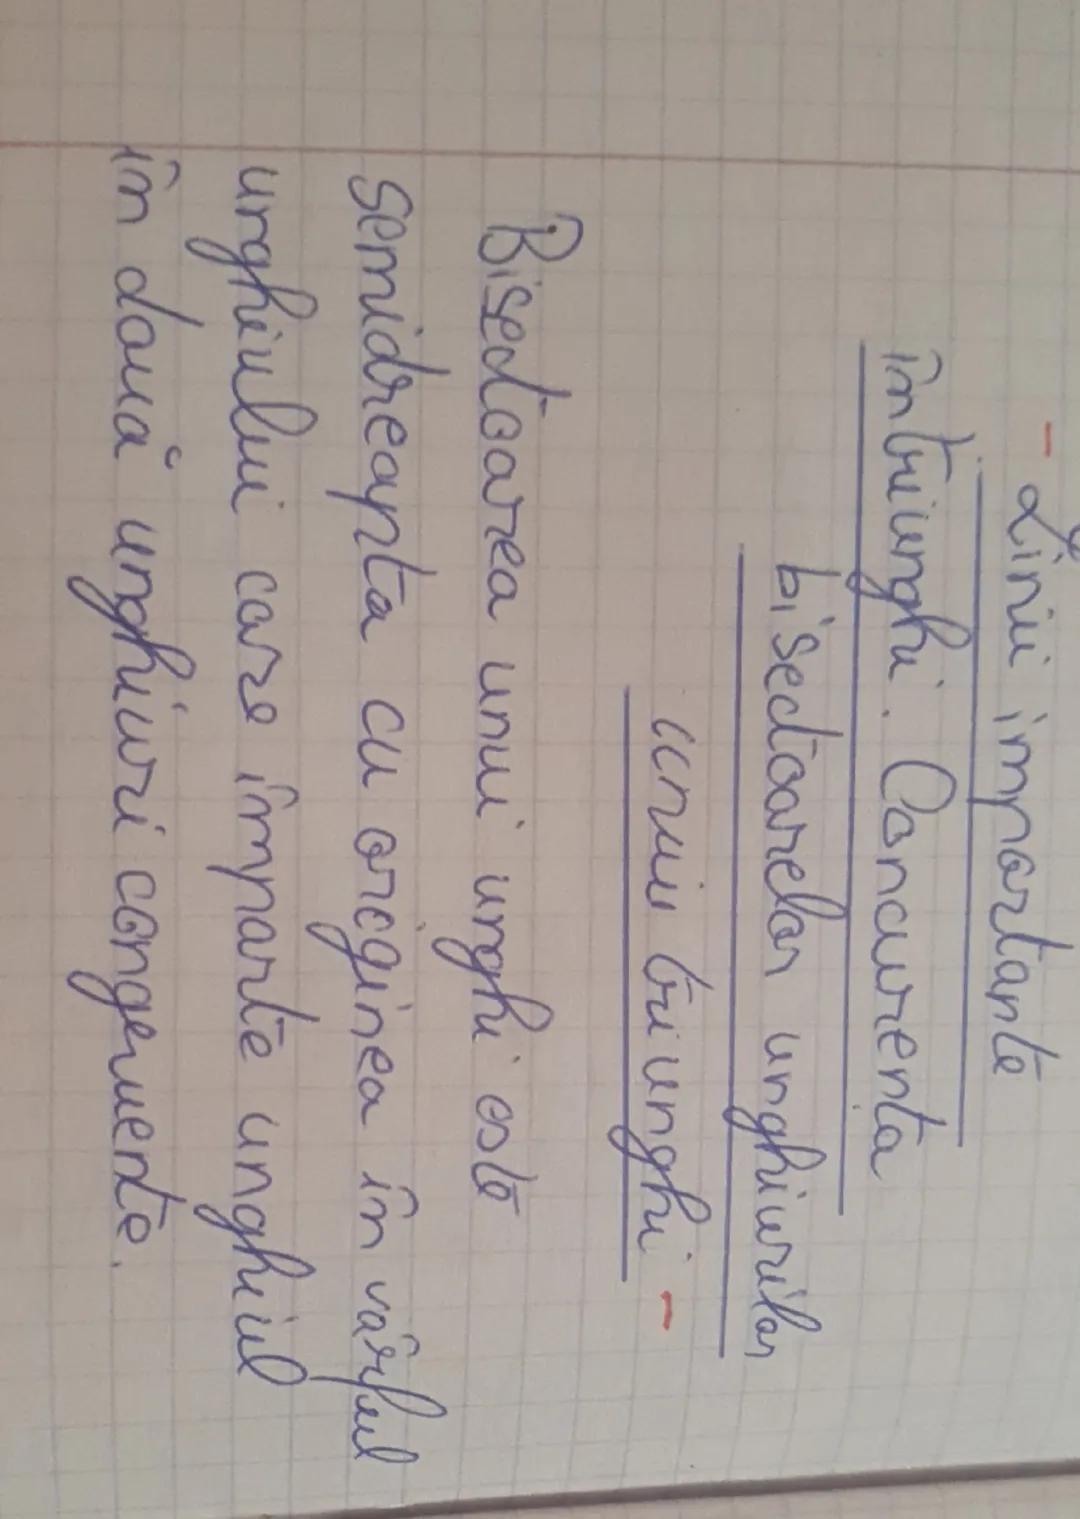 - Linii importante
în triunghi. Concurenta
bisectoarelor unghiurilor
unui triunghi -
Bisectoarea unui unghi este
semidreapta cu originea în vârful
unghiului care împarte unghiul
în două unghiuri congruente.